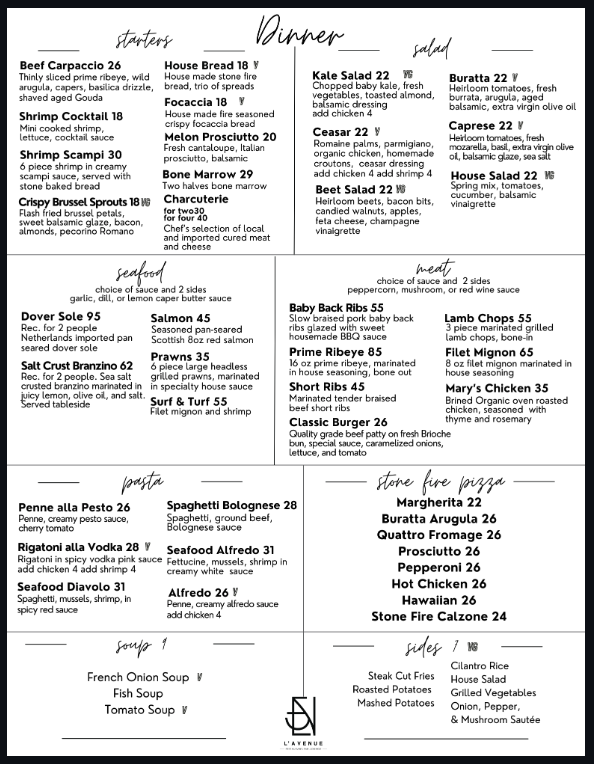 Dinner
starters
Beef Carpaccio 26
Thinly sliced prime ribeye, wild
arugula, capers, basilica drizzle,
shaved aged Gouda
Shrimp Cocktail 18
Mini cooked shrimp,
lettuce, cocktail sauce
Shrimp Scampi 30
6 piece shrimp in creamy
scampi sauce, served with
stone baked bread
Crispy Brussel Sprouts 18 VG
Flash fried brussel petals,
sweet balsamic glaze, bacon,
almonds, pecorino Romano
House Bread 18 V
House made stone fire
bread, trio of spreads
Focaccia 18 V
House made fire seasoned
crispy focaccia bread
Melon Prosciutto 20
Fresh cantaloupe, Italian
prosciutto, balsamic
Bone Marrow 29
Two halves bone marrow
Charcuterie
for two30
for four 40
Chef's selection of local
and imported cured meat
and cheese
salad
Kale Salad 22 VG
Chopped baby kale, fresh
vegetables, toasted almond,
balsamic dressing
add chicken 4
Ceasar 22 V
Romaine palms, parmigiano,
organic chicken, homemade
croutons, ceasar dressing
add chicken 4 add shrimp 4
Beet Salad 22 VG
Heirloom beets, bacon bits,
candied walnuts, apples,
feta cheese, champagne
vinaigrette
Buratta 22 V
Heirloom tomatoes, fresh
burrata, arugula, aged
balsamic, extra virgin olive oil
Caprese 22 V
Heirloom tomatoes, fresh
mozarella, basil, extra virgin olive
oil, balsamic glaze, sea salt
House Salad 22 VG
Spring mix, tomatoes,
cucumber, balsamic
vinaigrette
seafood
choice of sauce and 2 sides
garlic, dill, or lemon caper butter sauce
Dover Sole 95
Rec. for 2 people
Netherlands imported pan
seared dover sole
Salt Crust Branzino 62
Rec. for 2 people. Sea salt
crusted branzino marinated in
juicy lemon, olive oil, and salt.
Served tableside
Salmon 45
Seasoned pan-seared
Scottish 8oz red salmon
Prawns 35
6 piece large headless
grilled prawns, marinated
in specialty house sauce
Surf & Turf 55
Filet mignon and shrimp
meat
choice of sauce and 2 sides
peppercorn, mushroom, or red wine sauce
Baby Back Ribs 55
Slow braised pork baby back
ribs glazed with sweet
housemade BBQ sauce
Prime Ribeye 85
16 oz prime ribeye, marinated
in house seasoning, bone out
Short Ribs 45
Marinated tender braised
beef short ribs
Classic Burger 26
Quality grade beef patty on fresh Brioche
bun, special sauce, caramelized onions,
lettuce, and tomato
Lamb Chops 55
3 piece marinated grilled
lamb chops, bone-in
Filet Mignon 65
8 oz filet mignon marinated in
house seasoning
Mary's Chicken 35
Brined Organic oven roasted
chicken, seasoned with
thyme and rosemary
pasta
Penne alla Pesto 26
Penne, creamy pesto sauce,
cherry tomato
Rigatoni alla Vodka 28 V
Rigatoni in spicy vodka pink sauce
add chicken 4 add shrimp 4
Seafood Diavolo 31
Spaghetti, mussels, shrimp, in
spicy red sauce
Spaghetti Bolognese 28
Spaghetti, ground beef,
Bolognese sauce
Seafood Alfredo 31
Fettucine, mussels, shrimp in
creamy white sauce
Alfredo 26 V
Penne, creamy alfredo sauce
add chicken 4
stone fire pizza
Margherita 22
Buratta Arugula 26
Quattro Fromage 26
Prosciutto 26
Pepperoni 26
Hot Chicken 26
Hawaiian 26
Stone Fire Calzone 24
soup 9
French Onion Soup V
Fish Soup
Tomato Soup V
sides 7 VG
Steak Cut Fries
Roasted Potatoes
Mashed Potatoes
Cilantro Rice
House Salad
Grilled Vegetables
Onion, Pepper,
& Mushroom Sautée
L'AVENUE